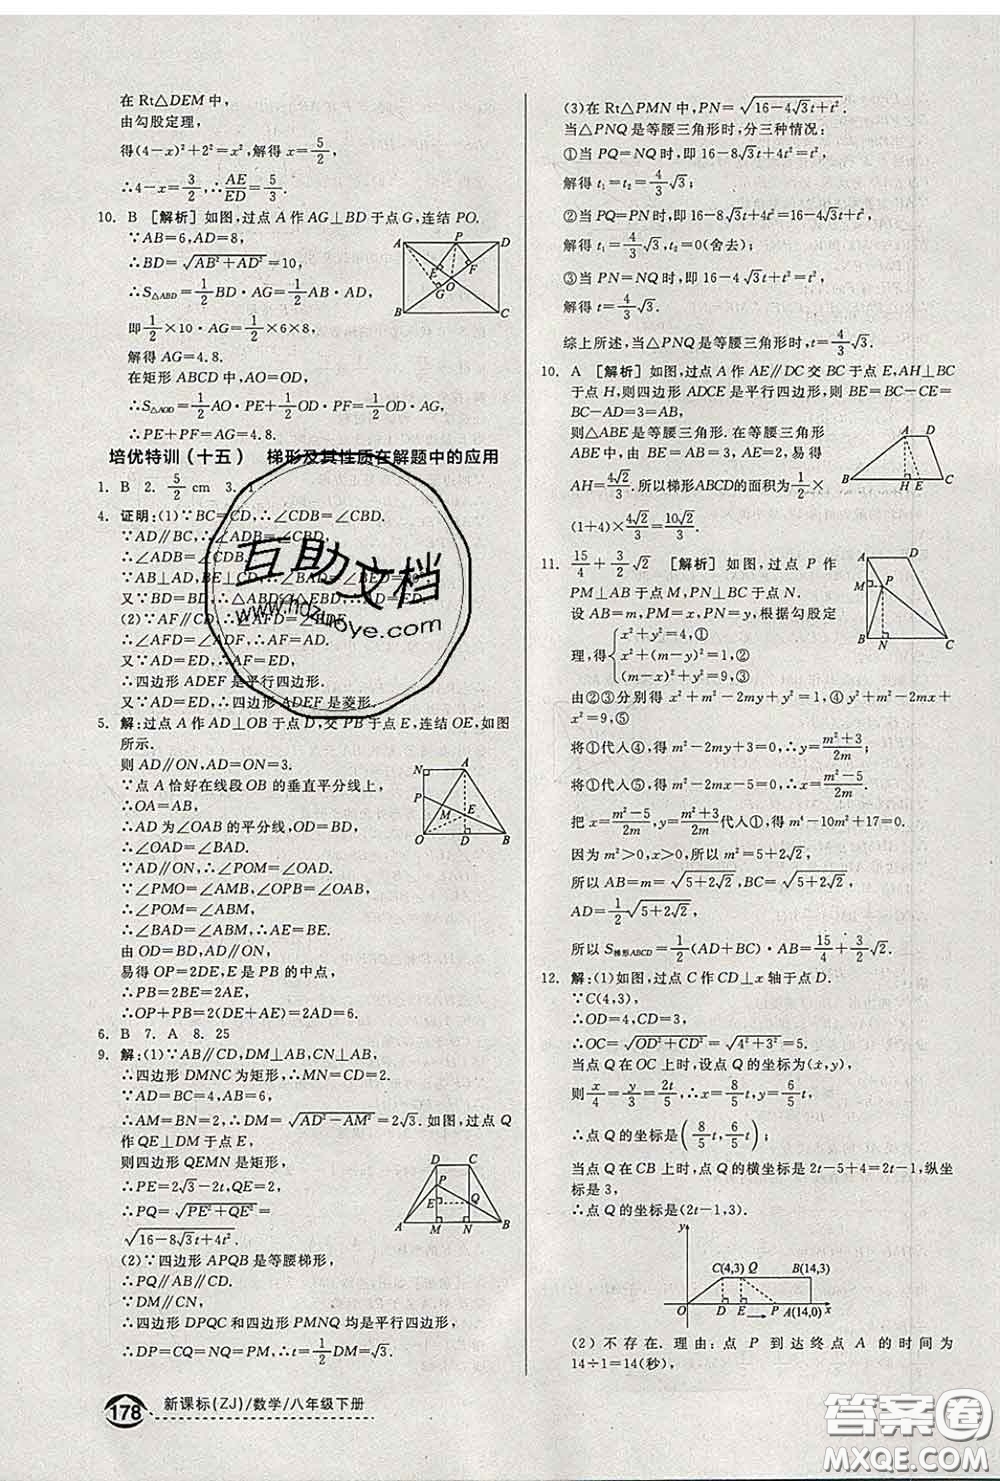 在 Rt△DEM 中,
由勾股定理,
得(4-x)²+2²=x²,解得 x=5/2,
∴4-x=3/2,∴AE/ED=5/3.
10. B [解析]如图,过点 A 作 AG⊥BD 于点 G,连结 PO.
∵AB=6,AD=8,
∴BD=√(AB²+AD²)=10,
∴S△ABD=1/2BD·AG=1/2AB·AD,
即1/2×10·AG=1/2×6×8,
解得 AG=4.8.
在矩形 ABCD 中,AO=OD,
∴S△AOD=1/2AO·PE+1/2OD·PF=1/2OD·AG,
∴PE+PF=AG=4.8.
培优特训(十五) 梯形及其性质在解题中的应用
1. B 2. 5/2 cm 3. 1
4. 证明:(1)∵BC=CD,∴∠CDB=∠CBD.
∵AD∥BC,∴∠ADB=∠CBD,
又∵AB⊥AD,BE⊥CD,∴∠BAD=∠BED=90°,
又∵BD=BD,∴△ABD≌△EBD,∴AD=ED.
(2)∵AF∥CD,∴∠AFD=∠EDF,
∴∠AFD=∠ADF,∴AF=AD.
又∵AD=ED,∴AF=ED,
∴四边形 ADEF 是平行四边形.
又∵AD=ED,∴四边形 ADEF 是菱形.
5. 解:过点 A 作 AD⊥OB 于点 D,交 PB 于点 E,连结 OE,如图
所示.
则 AD∥ON,AD=ON=3.
∵点 A 恰好在线段 OB 的垂直平分线上,
∴OA=AB,
∴AD 为∠OAB 的平分线,∴∠OAD=∠BAD.
∵AD∥ON,∴∠POM=∠OAD.
∵∠PMO=∠AMB,∠OPB=∠OAB,
∴∠POM=∠ABM,
∴∠BAD=∠ABM,∴AE=BE.
由 OD=BD,AD∥ON,
易得 OP=2DE,E 是 PB 的中点,
∴PB=2BE=2AE,
∴OP+PB=2(DE+AE)=2AD=6.
6. B 7. A 8. 25
9. 解:(1)∵AB∥CD,DM⊥AB,CN⊥AB,
∴四边形 DMNC 为矩形,∴MN=CD=2.
∵AD=BC=4,AB=6,
∴AM=BN=2,∴DM=√(AD²-AM²)=2√3.如图,过点 Q
作 QE⊥DM 于点 E,
则四边形 QEMN 是矩形,
∴PE=2√3-2t,QE=2,
∴PQ=√(PE²+QE²)=
√(16-8√3t+4t²).
(2)∵四边形 APQB 是等腰梯形,
∴PQ∥AB∥CD.
∵DM∥CN,
∴四边形 DPQC 和四边形 PMNQ 均是平行四边形,
∴DP=CQ=NQ=PM,∴t=√3/2.
D C P E Q A M N B
新课标(ZJ)/数学/八年级下册
178
(3)在 Rt△PMN 中,PN=√(16-4√3t+t²).
当△PNQ 是等腰三角形时,分三种情况:
①当 PQ=NQ 时,即 16-8√3t+4t²=t²,
解得 t₁=t₂=4/3√3;
②当 PQ=PN 时,即 16-8√3t+4t²=16-4√3t+t²,
解得 t₁=4/3√3,t₂=0(舍去);
③当 PN=NQ 时,即 16-4√3t+t²=t²,
解得 t=4/3√3.
综上所述,当△PNQ 是等腰三角形时,t=4/3√3.
10. A [解析]如图,过点 A 作 AE∥DC 交 BC 于点 E,AH⊥BC
于点 H,则四边形 ADCE 是平行四边形,则 BE=BC-CE=
BC-AD=3=AB,
则△ABE 是等腰三角形,易得
AH=4√2/3.所以梯形ABCD的面积为1/2×
(1+4)×4√2/3=10√2/3.
11. 15/4+3/2√2 [解析]如图,过点 P 作
PM⊥AB 于点 M,PN⊥BC于点 N.
设 AB=m,PM=x,PN=y,根据勾股定
理,得{x²+y²=4,①
x²+(m-y)²=2,②
y²+(m-x)²=9,③
由②③分别得 x²+m²-2my+y²=2,④ m²-2mx+
x²+y²=9,⑤
将①代入④,得 m²-2my+2=0,∴y=(m²+2)/2m;
将①代入⑤,得 m²-2mx-5=0,∴x=(m²-5)/2m.
把 x=(m²-5)/2m,y=(m²+2)/2m代入①,得 m⁴-10m²+17=0.
因为 m²>0,x>0,所以 m²=5+2√2,
所以 AB=m=√(5+2√2),BC=√(5+2√2),
AD=1/2√(5+2√2),
所以 S梯形ABCD=1/2(AD+BC)·AB=15/4+3/2√2.
12. 解:(1)如图,过点 C 作 CD⊥x 轴于点 D.
∵C(4,3),
∴OD=4,CD=3,
∴OC=√(OD²+CD²)=√(4²+3²)=5.
当点 Q 在 OC 上时,设点 Q 的坐标为(x,y),
则x/4=y/3=2t/5,∴x=8/5t,y=6/5t,
∴点 Q 的坐标是(8/5t,6/5t);
当点 Q 在 CB 上时,点 Q 的横坐标为 2t-5+4=2t-1,纵坐
标是 3,
∴点 Q 的坐标是(2t-1,3).
y C(4,3) Q B(14,3)
O D E P A(14,0) x
(2) 不存在. 理由:点 P 到达终点 A 的时间为
14÷1=14(秒),
互助文档
www.hdzuoye.com
答案圈
MXQE.COM